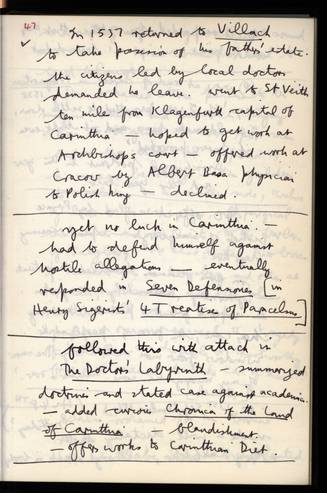 47
In 1537 returned to Villach
to take possession of his father's estate.
the citizens led by local doctors
demanded he leave. went to St Veith
ten mile from Klagenfurth capital of
Carinthia — hoped to get work at
Archbishops court — offered work at
Cracow by Albert Basa physician
to Polish king — declined.
yet no luck in Carinthia.
had to defend himself against
hostile allegations — eventually
responded in Seven Defensiones [in
Henry Sigerist's 4 Treatises of Paracelsus]
followed this with attack in
The Doctors' Labyrinth — summarized
doctrines and stated case against academia.
— added curious Chronica of the Land
of Carinthia — blandishment.
— offers works to Carinthian Diet.